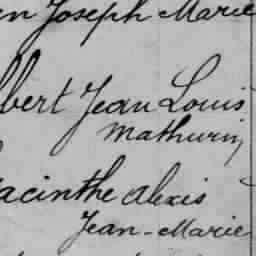 en Joseph Marie
lbert Jean Louis
Mathurin
Hacinthe Alexis
Jean-Marie